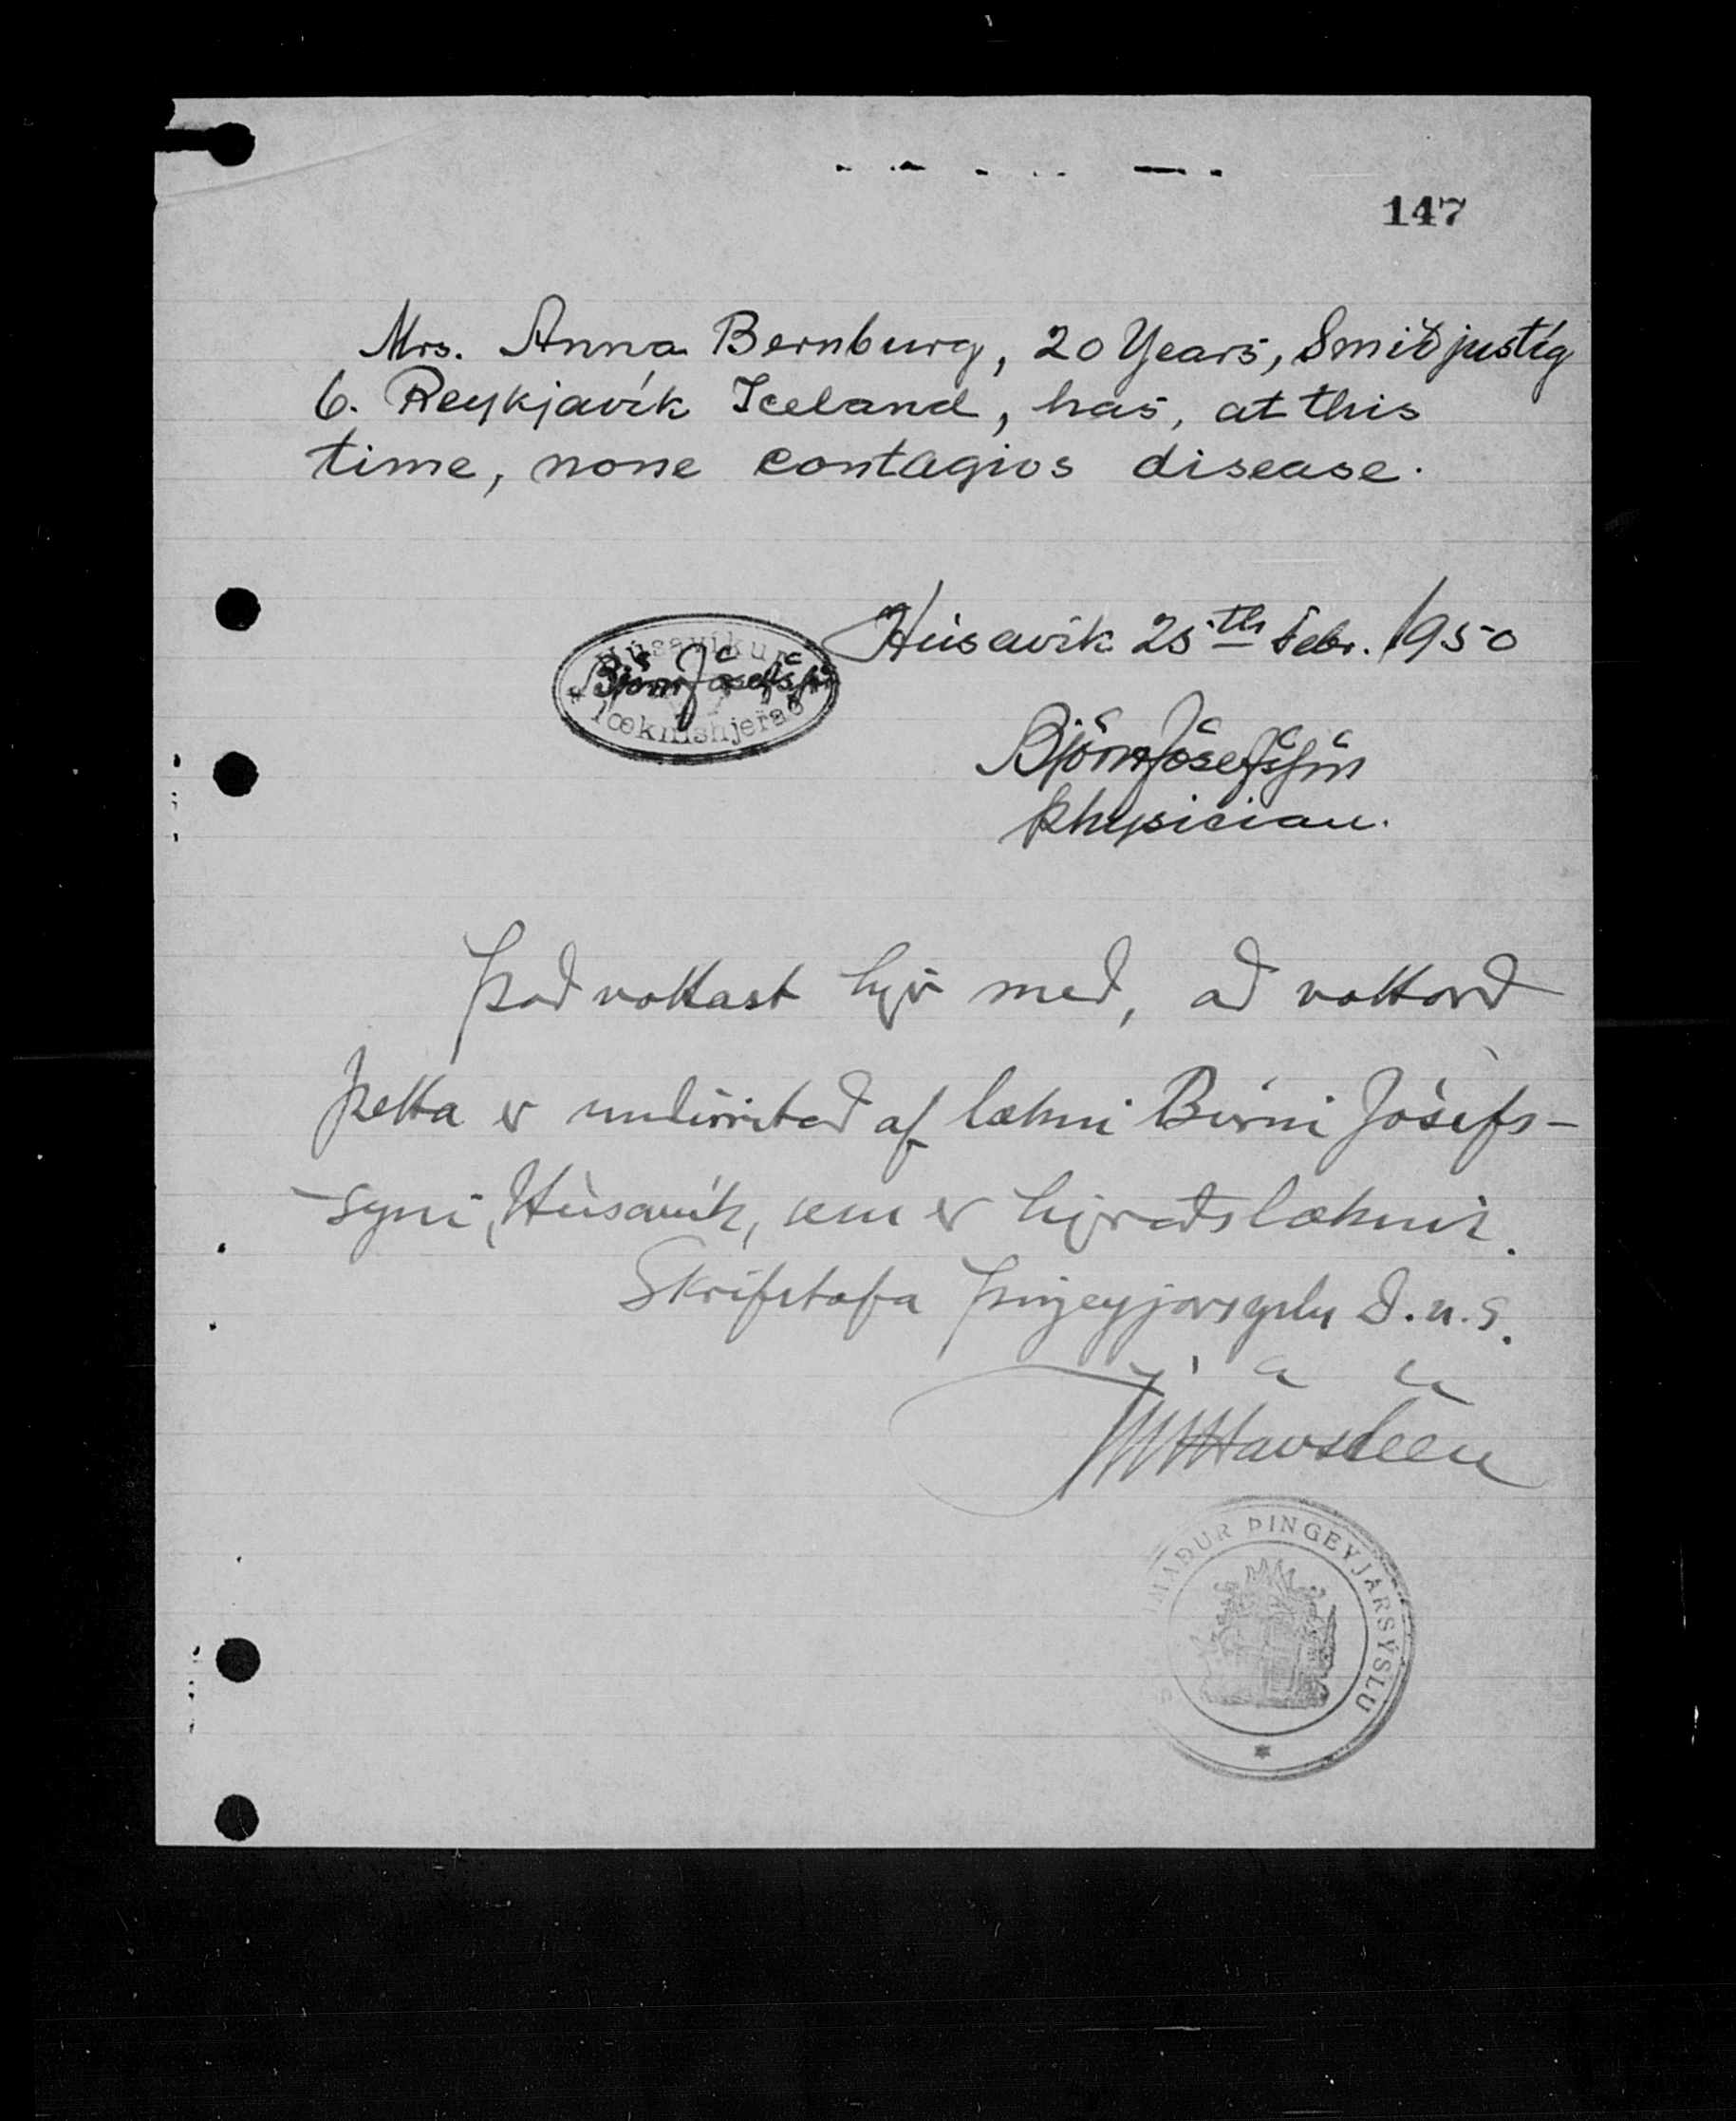 147
Mrs. Anna Bernburg, 20 Years, Smiðjustíg
6. Reykjavík Iceland, has, at this
time, none contagios disease.
Húsavík 25th Febr. 1950
Húsavíkur
Björn Jósefsson
læknishjerað
Björn Jósefsson
physician.
Það vottast hjer með, að vottorð
þetta er undirritað af lækni Birni Jósefs-
-syni, Húsavík, sem er hjeraðslæknir.
Skrifstofa Þingeyjarsýslu D.u.s.
Havsteen
MAÐUR ÞINGEYJARSÝSLU